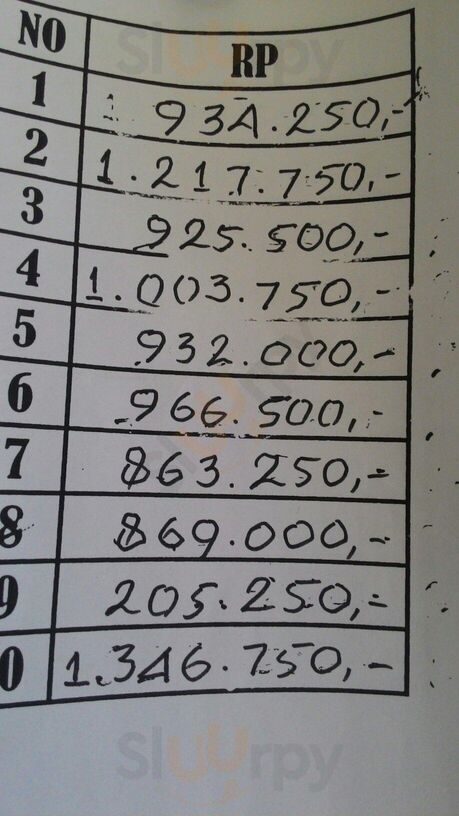 Sluurpy
NO RP
1 934.250,-
2 1.217.750,-
3 925.500,-
4 1.003.750,-
5 932.000,-
6 966.500,-
7 863.250,-
8 869.000,-
9 205.250,-
0 1.346.750,-
Sluurpy